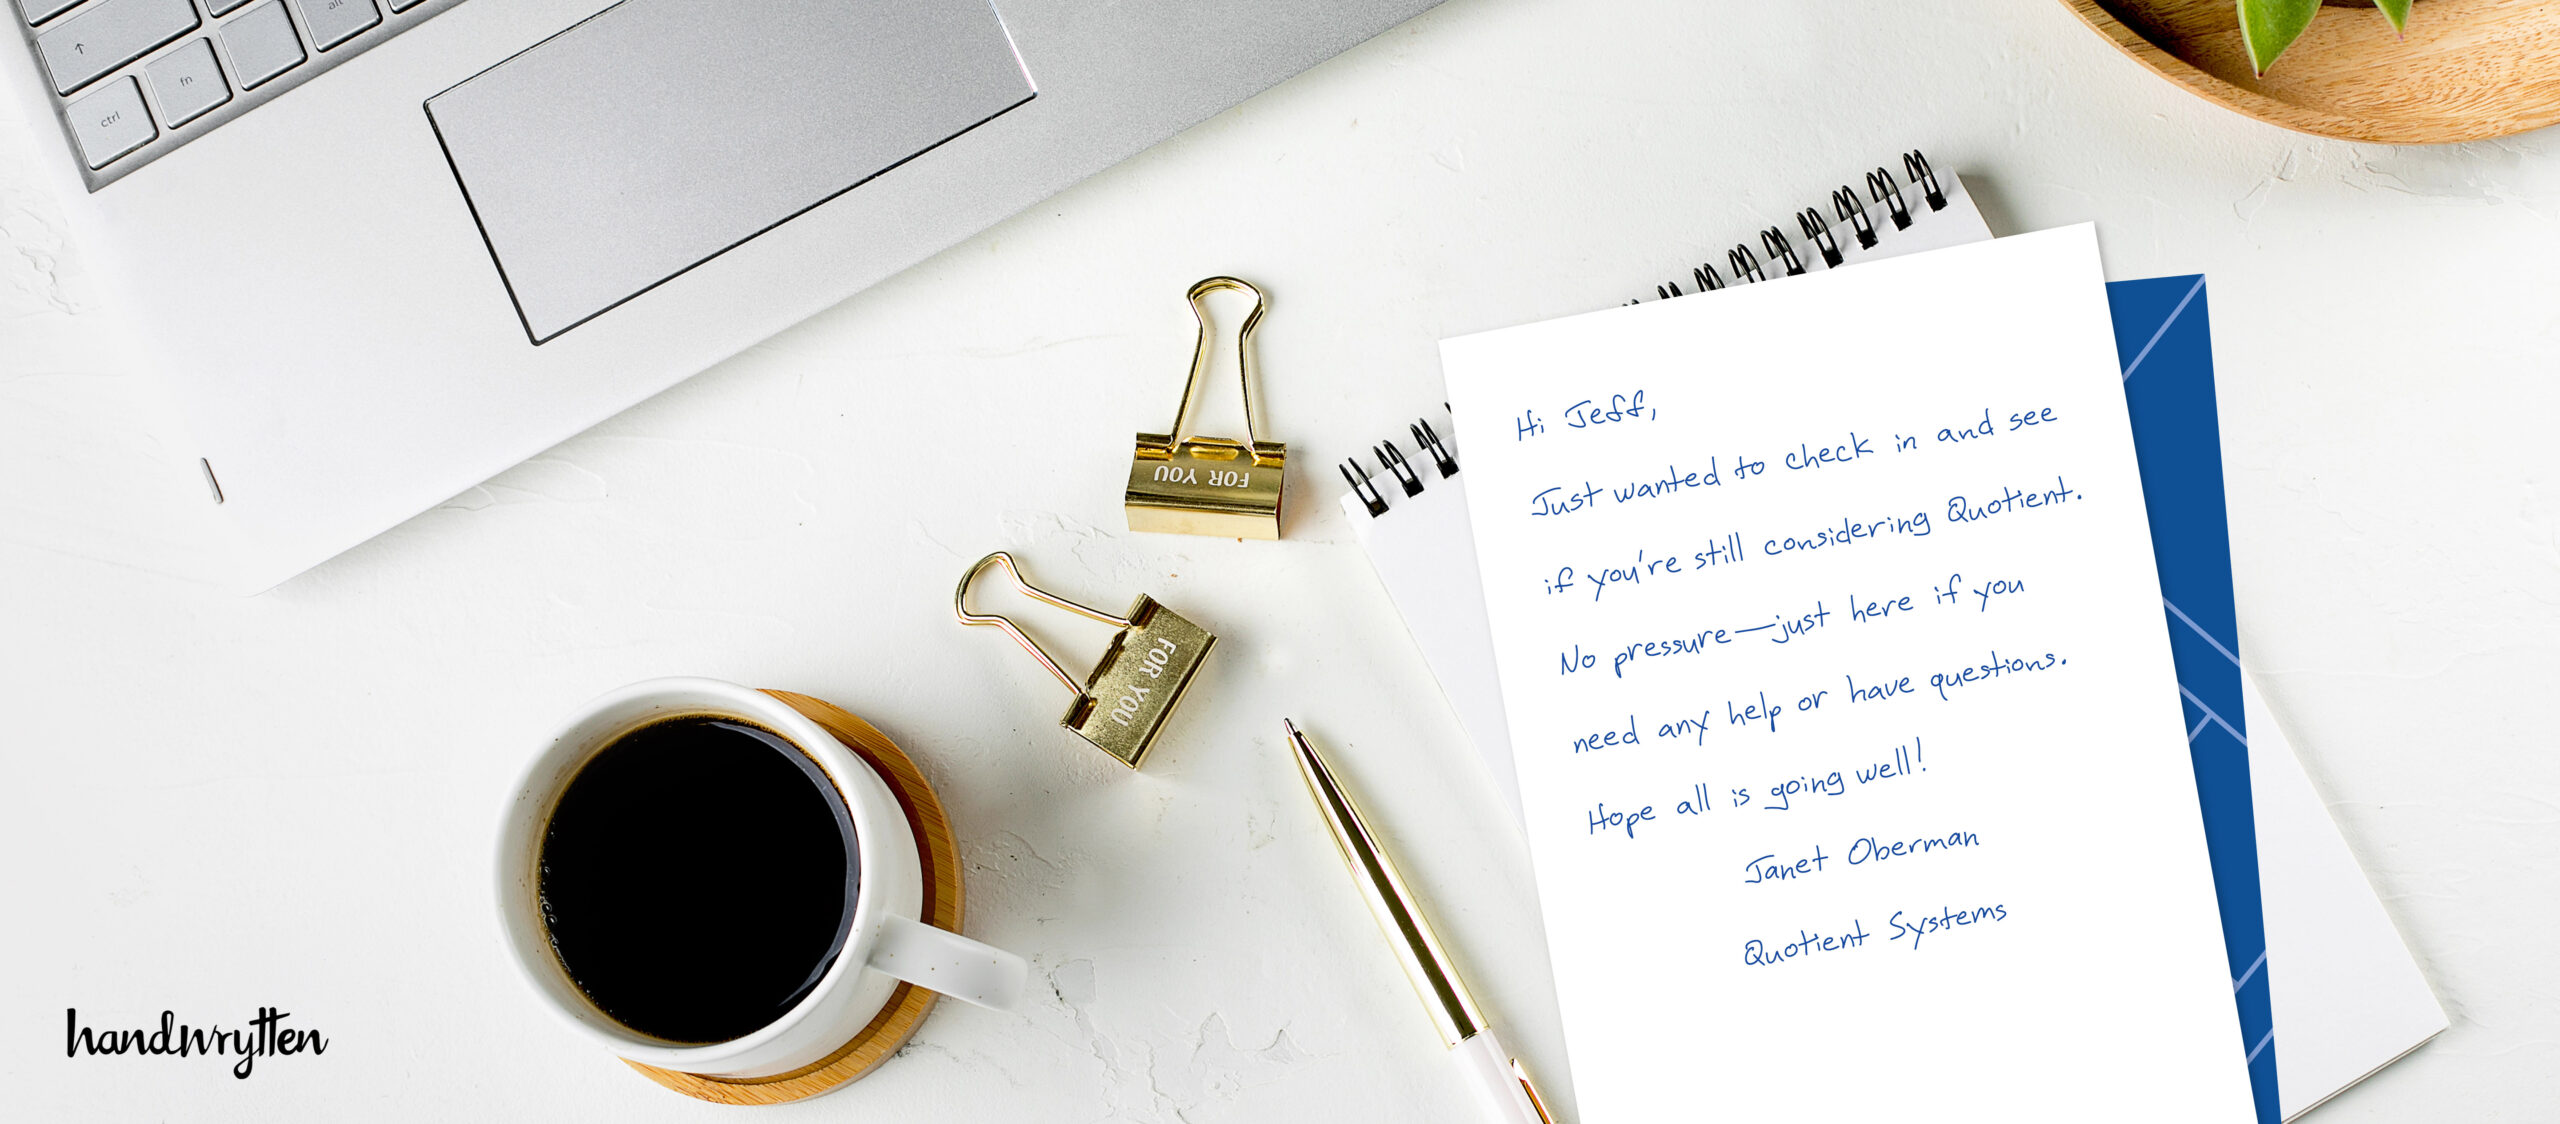 ↑
alt
fn
ctrl
FOR YOU
FOR YOU
Hi Jeff,
Just wanted to check in and see
if you're still considering Quotient.
No pressure—just here if you
need any help or have questions.
Hope all is going well!
Janet Oberman
Quotient Systems
handwrytten